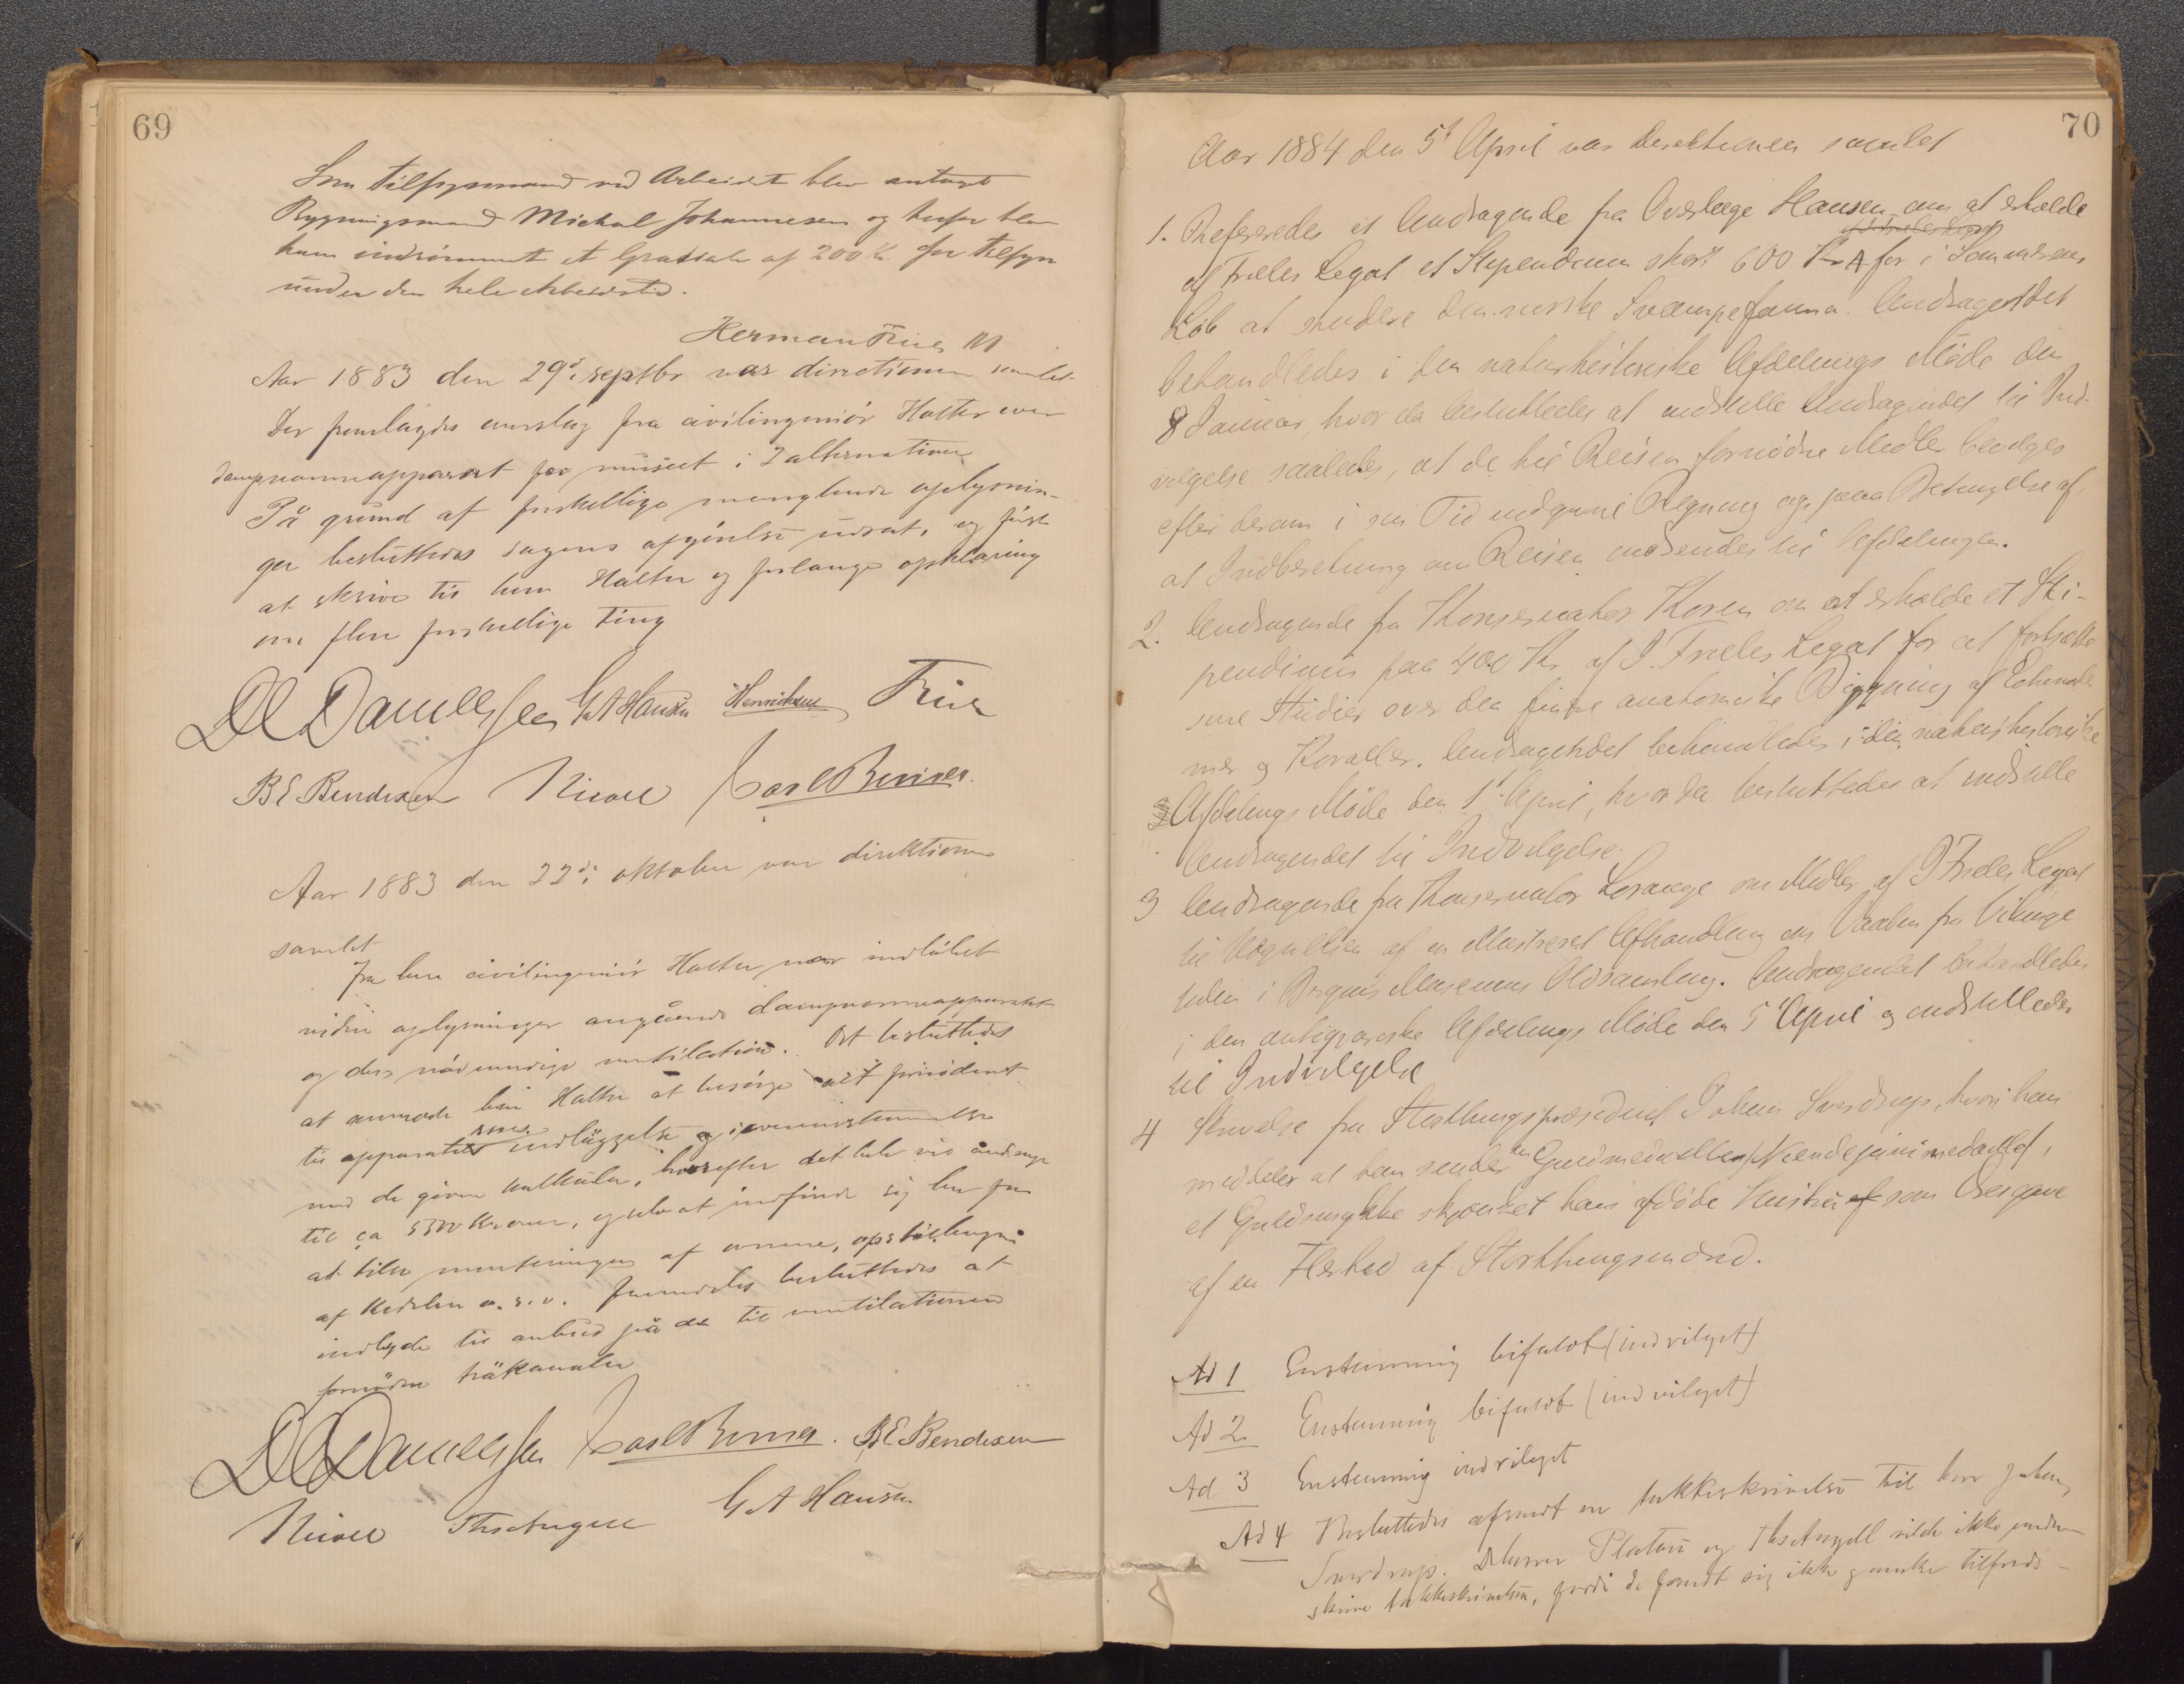 69
Som Tilsynsmand ved Arbeidet blev antaget
Bygningsmand Michal Johannesen og herfor blev
ham indrømmet et Gratiale af 200 Kr for Tilsyn
under den hele Arbeidstid.
Herman Friele
Aar 1883 den 29de septbr var directionen samlet
Der fremlagdes overslag fra civilingeniör Halter over
dampvarmeapparat for museet i 2 alternativer
På grund af forskellige manglende oplysnin-
ger besluttedes sagens afgörelse udsat, og först
at skrive til herr Halter og forlange opklaring
om flere forskellige Ting
DC Danielssen GA Hansen Henrichsen Friele
BE Bendixen Nicoll Carl Berner
Aar 1883 den 22de oktober var direktionen
samlet
Fra herr civilingeniör Halter var indlöbet
videre oplysninger angående dampvarmeapparatet
og den nödvendige ventilation. Det besluttedes
at anmode herr Halter at besörge alt fornödent
til apparatets indläggelse og i overensstemmelse
med de givne kalkuler, hvorefter det hele vil andrage
til ca 5500 Kroner, og selv at indfinde sig her for
at tilse monteringen af ovnene, opstillingen
af Kedelen o.s.v. Fremdeles besluttedes at
indbyde til anbud på de til ventilationen
fornödne träkanaler
DC Danielssen Carl Berner. BE Bendixen
Nicoll GA Hansen
70
Aar 1884 den 5t April var Direktionen samlet
1. Refereredes et Andragende fra Overlæge Hansen om at erholde
af Frieles Legat et Stipendium stort 600 Kr for i Sommerens
Løb at studere den norske Svampefauna. Andragendet
behandledes i den naturhistoriske Afdelings Møde den
8 Januar, hvor da besluttedes at indstille Andragendet til Ind-
vilgelse saaledes, at de til Reisen fornødne Midler bevilges
efter derom i sin Tid indgiven Regning og paa Betingelse af
at Indberetning om Reisen indsendes til Afdelingen.
2. Andragende fra Konservator Koren om at erholde et Sti-
pendium paa 400 Kr af J. Frieles Legat for at fortsætte
sine Studier over den finere anatomiske Bygning af Echinoder-
mer og Koraller. Andragendet behandledes i den naturhistoriske
Afdelings Møde den 1t April, hvor da besluttedes at indstille
Andragendet til Indvilgelse.
3 Andragende fra Konservator Lorange om Midler af J Frieles Legat
til Udgivelsen af en illustreret Afhandling om Vaaben fra Vikinge
tiden i Bergens Museums Oldsamling. Andragendet behandledes
i den antiqvariske Afdelings Møde den 5 April og indstilledes
til Indvilgelse
4 Skrivelse fra Storthingspræsident Johan Sverdrup, hvori han
meddeler at han sender en Guldmedaille (Niendejunimedaille),
et Guldsmykke skjænket hans afdøde Hustru som Gave
af en Flerhed af Storthingsmænd.
Ad 1 Enstemmig bifaldt (indvilget)
Ad 2 Enstemmig bifaldt (indvilget)
Ad 3 Enstemmig indvilget
Ad 4 Besluttedes afsendt en takkeskrivelse til herr Johan
Sverdrup. Dherrer Platou og Ths Angell vilde ikke under-
skrive takkeskrivelsen, fordi de fandt sig ikke ganske tilfreds-